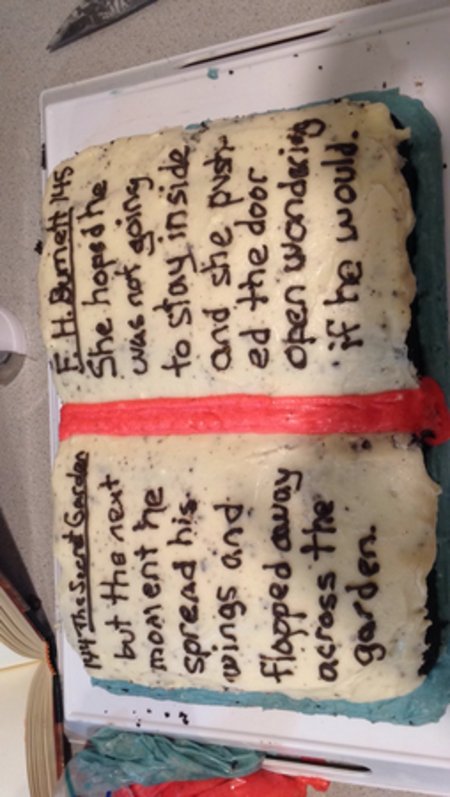 144 The Secret Garden
but the next
moment he
spread his
wings and
flapped away
across the
garden.
F. H. Burnett 145
She hoped he
was not going
to stay inside
and she push-
ed the door
open wondering
if he would.